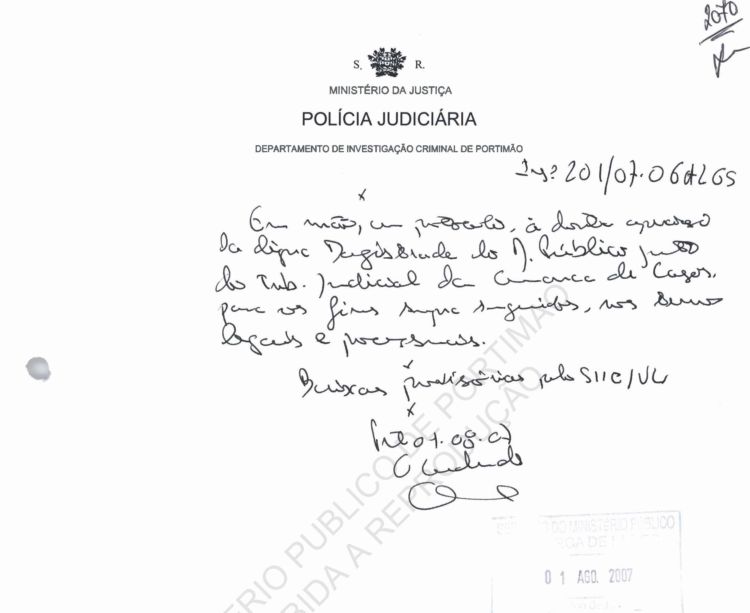 2070
S. R.
MINISTÉRIO DA JUSTIÇA
POLÍCIA JUDICIÁRIA
DEPARTAMENTO DE INVESTIGAÇÃO CRIMINAL DE PORTIMÃO
201/07.0GALGS
Em mão, à
da digna Magistrada do M. Público junto
do Trib. Judicial da Comarca de Lagos,
para os fins supra sugeridos, nos termos
legais e processuais.
Baixas provisórias pelo SIIC/
01.08.07
MINISTÉRIO PÚBLICO
01 AGO. 2007
ÉRIO PUBLICO DE PORTIMÃO
BIDA A REPRODUÇÃO